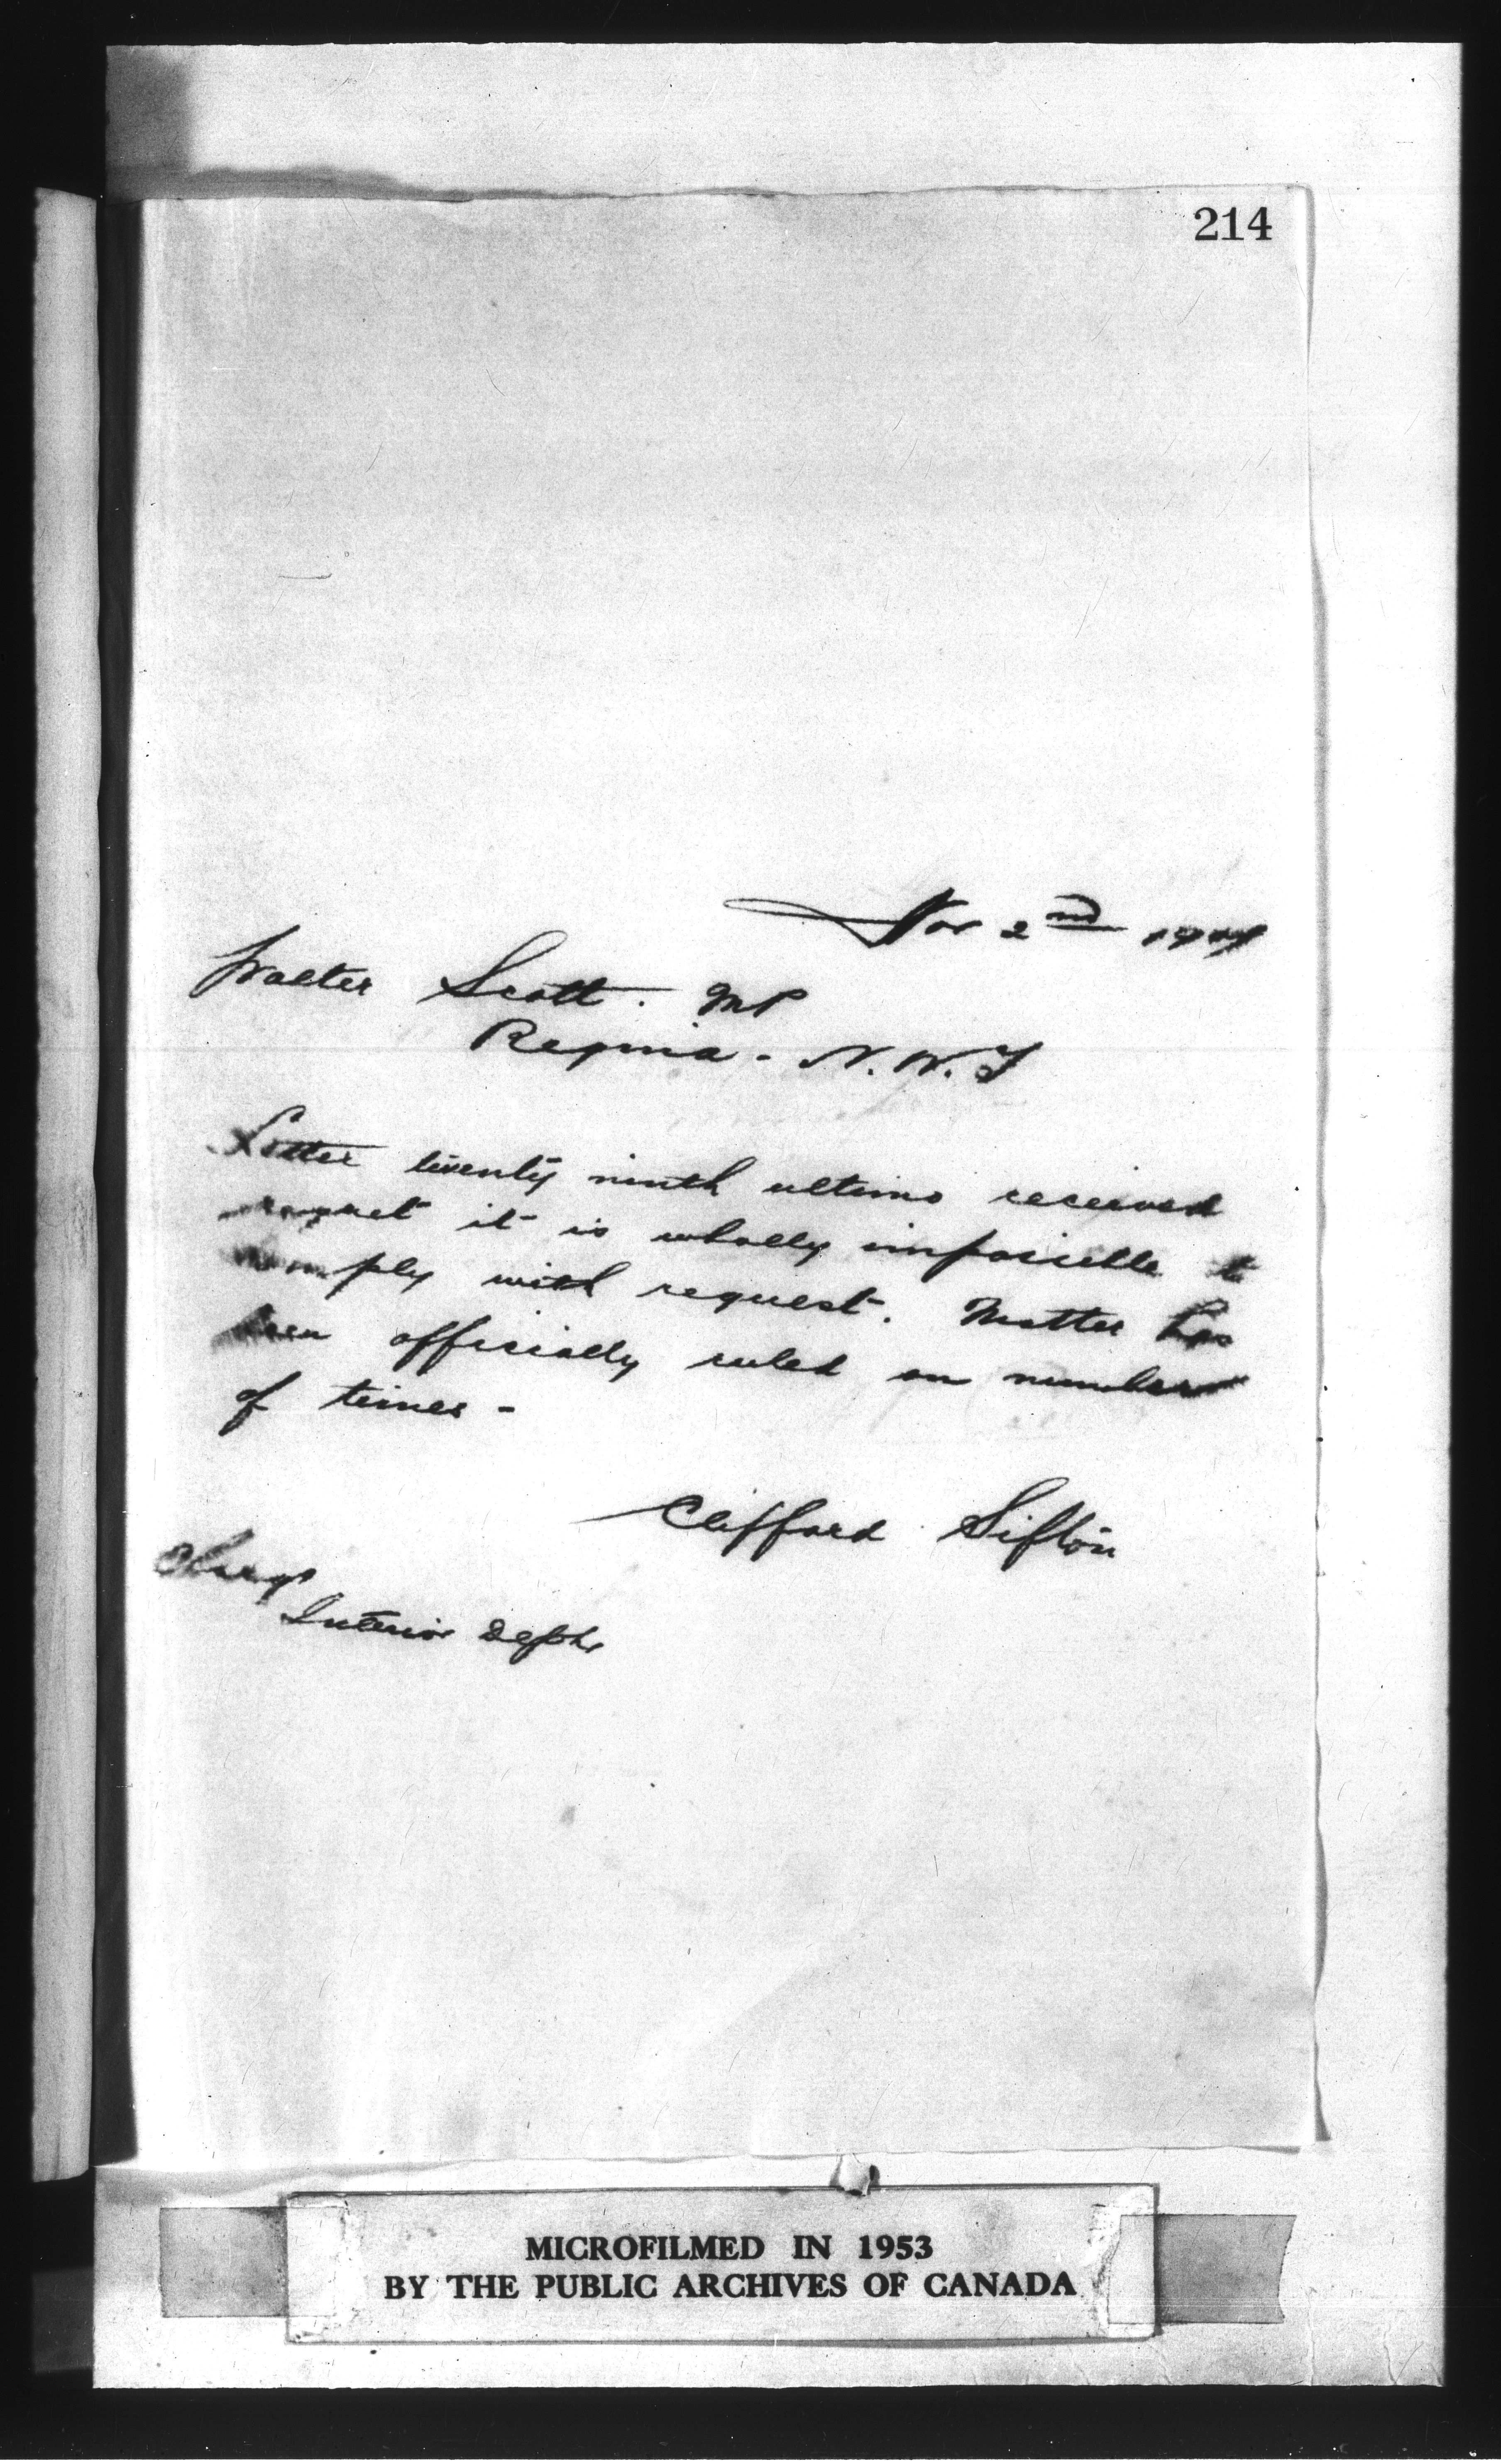 214
Nov 2nd
Walter Scott. MP
Regina - N.W.T
Letter twenty ninth ultimo received
regret it is wholly impossible to
comply with request. Matter has
been officially ruled on number
of times -
Clifford Sifton
Charge
Interior Dept
MICROFILMED IN 1953
BY THE PUBLIC ARCHIVES OF CANADA